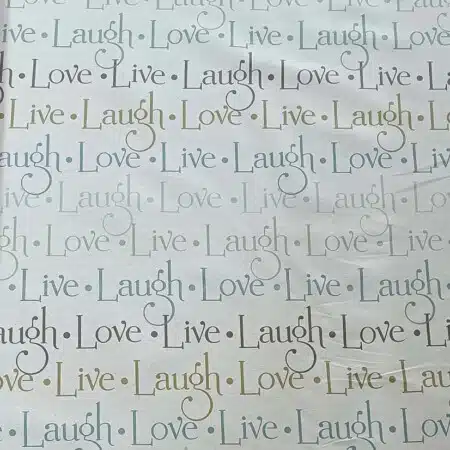 ive • Laugh • Love • Live • Laugh • Love
h • Love • Live • Laugh • Love • Live • La
• Live • Laugh • Love • Live • Laugh • L
augh • Love • Live • Laugh • Love • Liv
ive • Laugh • Love • Live • Laugh • Lo
gh • Love • Live • Laugh • Love • Live
• Live • Laugh • Love • Live • Laugh •
augh • Love • Live • Laugh • Love • Li
ove • Live • Laugh • Love • Live • Lau
e • Laugh • Love • Live • Laugh • Lov